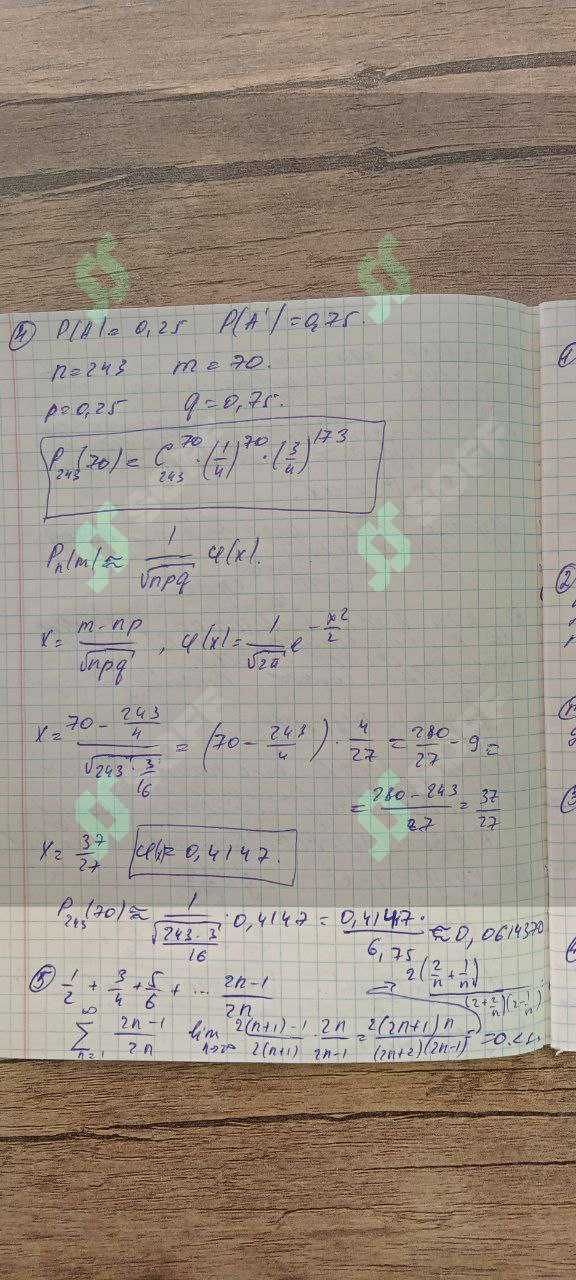 ④ P(A)= 0,25 P(A')=0,75.
n=243 m=70.
p=0,25 q=0,75.
P₂₄₃(70)= C₂₄₃⁷⁰·(1/4)⁷⁰·(3/4)¹⁷³
Pₙ(m)≈ 1/√npq φ(x).
x= (m-np)/√npq , φ(x)= 1/√2π e^(-x²/2)
x= (70 - 243/4)/√(243·3/16) = (70 - 243/4)·4/27 = 280/27 - 9 =
= (280-243)/27 = 37/27
x= 37/27 φ(x)= 0,4147.
P₂₄₃(70)≈ 1/√(243·3/16) ·0,4147 = 0,4147·/6,75 ≈0,0614370
⑤ 1/2 + 3/4 + 5/6 + ... (2n-1)/2n → 2(2/n + 1/n)/((2+2/n)(2-1/n))
∞ ∑ n=1 (2n-1)/2n lim n→∞ (2(n+1)-1)/(2(n+1)) · 2n/(2n-1) = 2(2n+1)n/((2n+2)(2n-1)) =0.<1.
①
②
③
SOFF
SOFF
SOFF